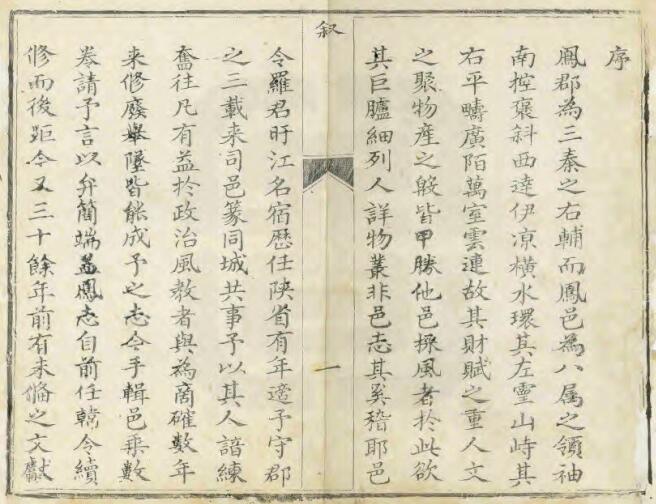 序
鳳郡為三秦之右輔而鳳邑為八屬之領袖
南控褒斜西達伊凉橫水環其左靈山峙其
右平疇廣陌萬室雲連故其財賦之重人文
之聚物產之殷皆甲勝他邑採風者於此欲
其巨臚細列人詳物叢非邑志其奚稽耶邑
叙
一
令羅君旴江名宿歷任陝省有年適予守郡
之三載来司邑篆同城共事予以其人諳練
奮往凡有益於政治風教者與為商確數年
来修廢舉墜皆能成予之志今手輯邑乘數
卷請予言以弁簡端盖鳳志自前任韓令續
修而後距今又三十餘年前有未備之文獻